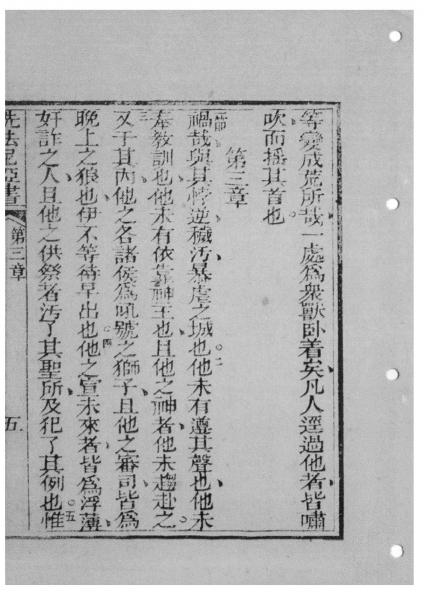 等變成荒所哉一處爲衆獸卧着矣凡人逕過他者皆嘯
吹而搖其首也
第三章
一節禍哉與其悖逆穢汚暴虐之城也二他未有遵其聲也他未
奉教訓也他未有依靠神主也且他之神者他未趨赴之
三又于其內他之各諸侯爲吼號之獅子且他之審司皆爲
晚上之狼也伊不等待早出也四他之宣未來者皆爲浮薄
奸詐之人且他之供祭者汚了其聖所及犯了其例也五惟
先法尼亞書 第三章 五